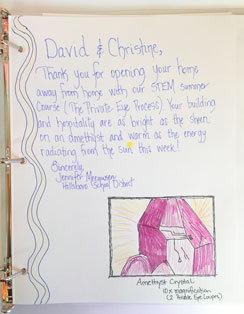 David & Christine,
Thank you for opening your home
away from home with our STEM summer
Course (The Private Eye Process). Your building
and hospitality are as bright as the sheen
on an amethyst and warm as the energy
radiating from the sun this week!
Sincerely,
Jennifer
Hillsboro School District
Amethyst Crystal
10x magnification
(2 Private Eye Loupes)